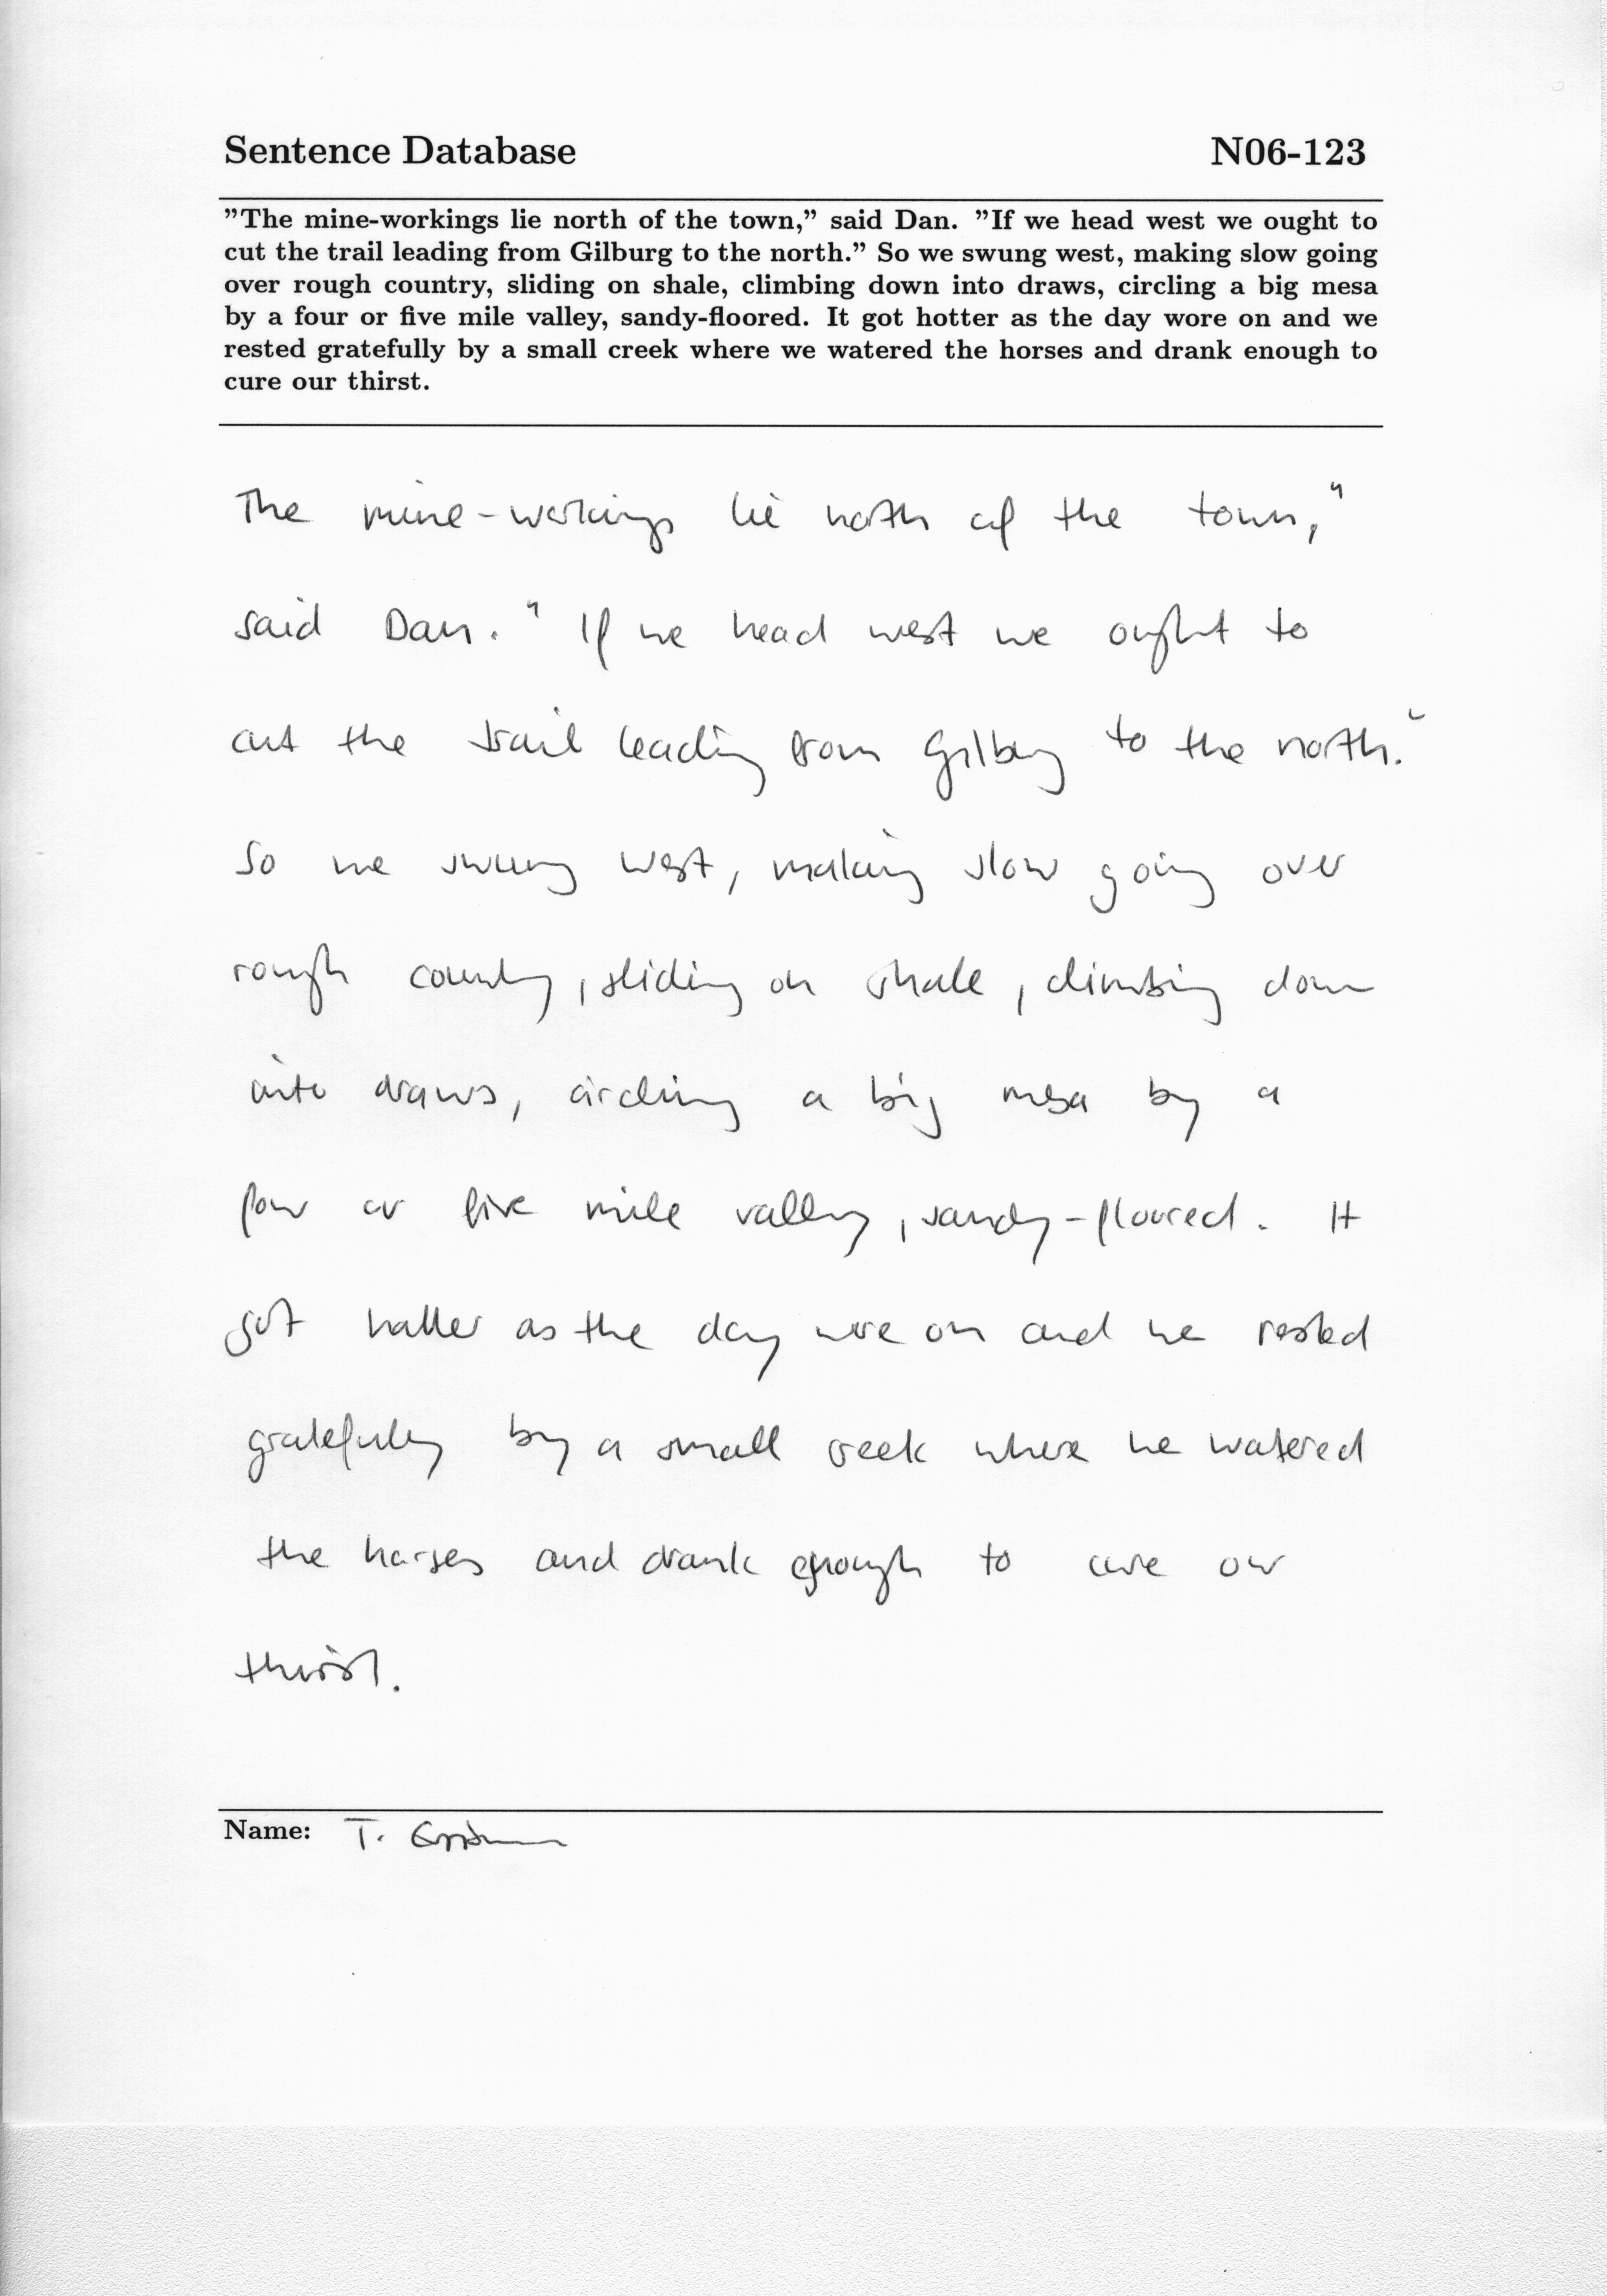 Sentence Database N06-123
”The mine-workings lie north of the town,” said Dan. ”If we head west we ought to
cut the trail leading from Gilburg to the north.” So we swung west, making slow going
over rough country, sliding on shale, climbing down into draws, circling a big mesa
by a four or five mile valley, sandy-floored. It got hotter as the day wore on and we
rested gratefully by a small creek where we watered the horses and drank enough to
cure our thirst.
The mine-workings lie north of the town,"
said Dan. "If we head west we ought to
cut the trail leading from Gilburg to the north."
So we swung west, making slow going over
rough country, sliding on shale, climbing down
into draws, circling a big mesa by a
four or five mile valley, sandy-floored. It
got hotter as the day wore on and we rested
gratefully by a small creek where we watered
the horses and drank enough to cure our
thirst.
Name: T.